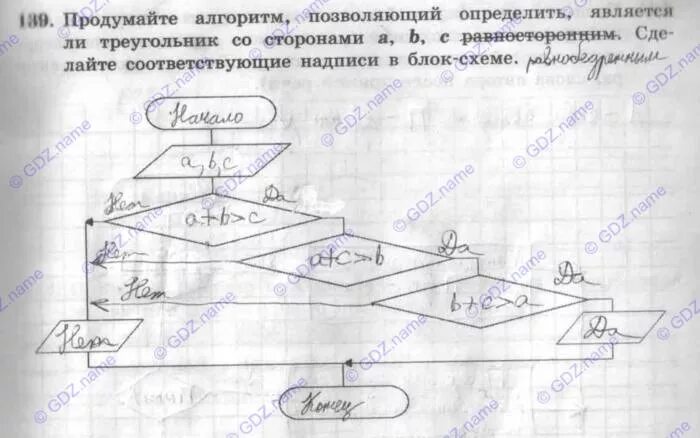 139. Продумайте алгоритм, позволяющий определить, является
ли треугольник со сторонами a, b, c равносторонним. Сде-
лайте соответствующие надписи в блок-схеме. равнобедренным
Начало
a, b, c
Нет
Да
a+b>c
Нет
a+c>b
Да
Нет
b+c>a
Да
Нет
Да
Конец
© GDZ.name